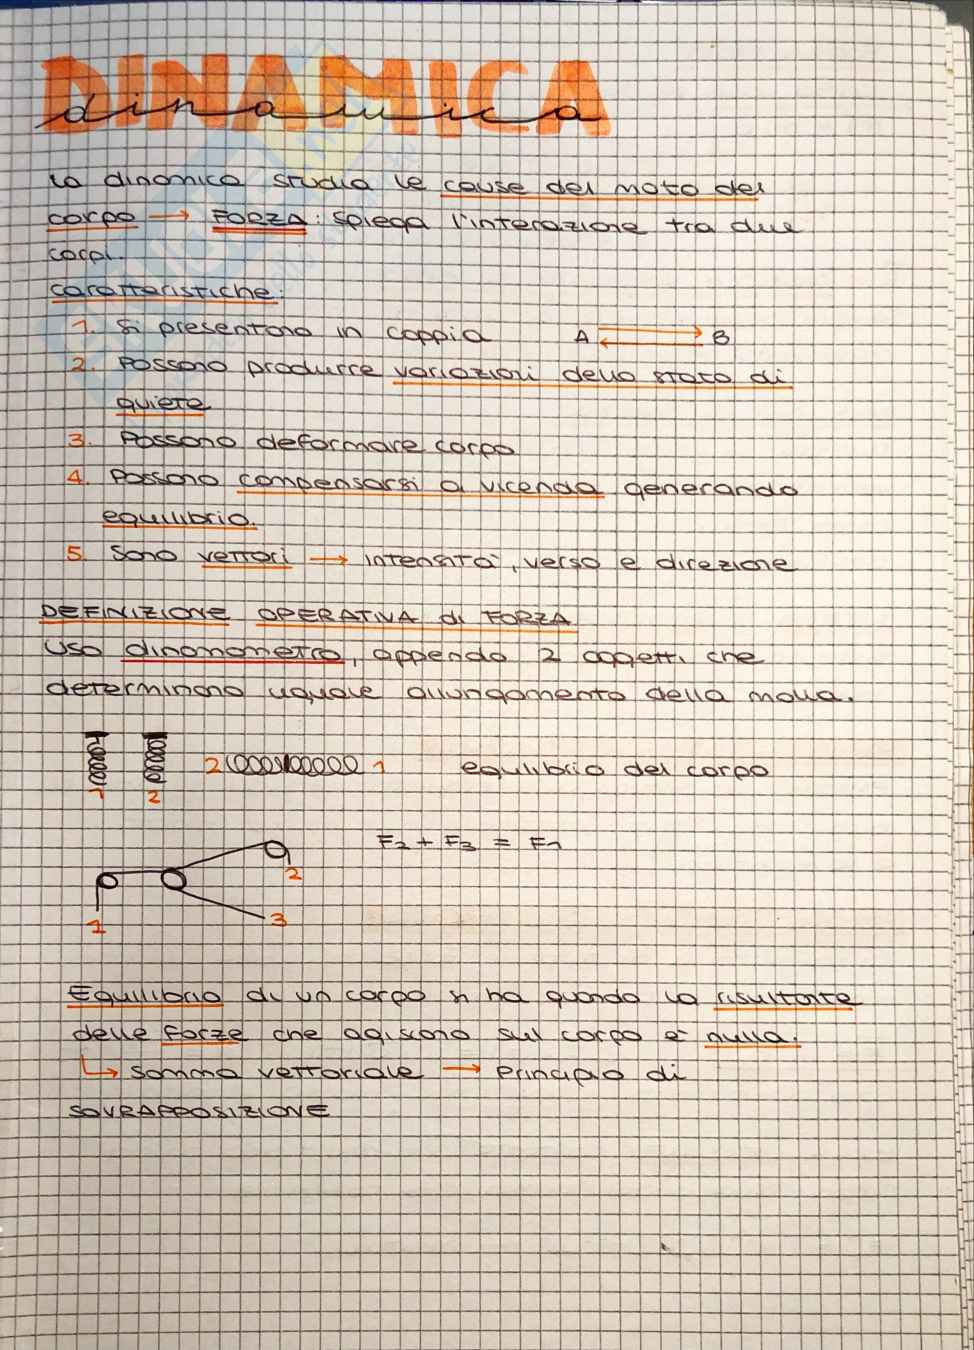 DINAMICA
dinamica
la dinamica studia le cause del moto del
corpo → FORZA: spiega l'interazione tra due
corpi.
caratteristiche:
1. Si presentano in coppia A B
2. Possono produrre variazioni dello stato di
quiete
3. Possono deformare corpo
4. Possono compensarsi a vicenda generando
equilibrio.
5. Sono vettori → intensità, verso e direzione
DEFINIZIONE OPERATIVA di FORZA
Uso dinamometro, appendo 2 oggetti che
determinano uguale allungamento della molla.
2 1 equilibrio del corpo
1 2
F2 + F3 = F1
2
1 3
Equilibrio di un corpo si ha quando la risultante
delle forze che agiscono sul corpo è nulla.
↳ somma vettoriale → principio di
SOVRAPPOSIZIONE